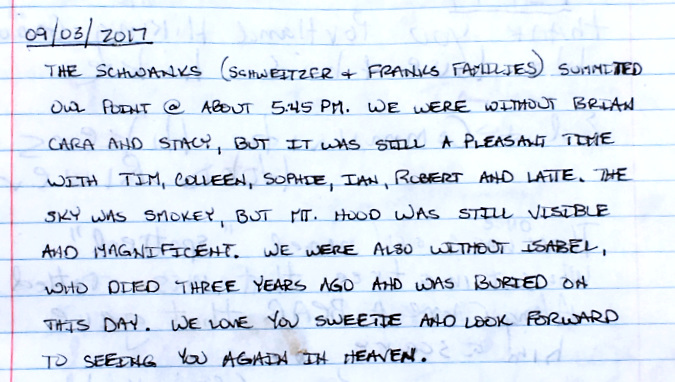 09/03/2017
THE SCHWANKS (SCHWEITZER + FRANKS FAMILIES) SUMMITED
OWL POINT @ ABOUT 5:45 PM. WE WERE WITHOUT BRIAN
CARA AND STACY, BUT IT WAS STILL A PLEASANT TIME
WITH TIM, COLLEEN, SOPHIE, IAN, ROBERT AND LATTE. THE
SKY WAS SMOKEY, BUT MT. HOOD WAS STILL VISIBLE
AND MAGNIFICENT. WE WERE ALSO WITHOUT ISABEL,
WHO DIED THREE YEARS AGO AND WAS BURIED ON
THIS DAY. WE LOVE YOU SWEETIE AND LOOK FORWARD
TO SEEING YOU AGAIN IN HEAVEN.